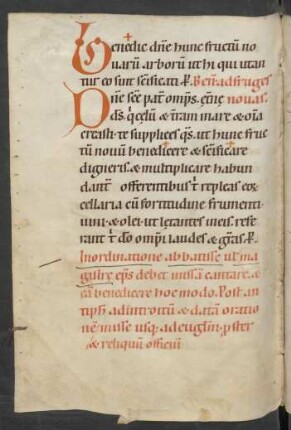 Benedic dñe hunc fructũ no
uarũ arborũ ut hi qui utan
tur eo sint sc̃ificati. P. Ben̄. ad fruges
Dñe sc̃e pat̃ omp̃s, et̃nę nouas.
ds̃. q̇ cęlũ & t̃ram mare & om̃a
creasti. te supplices q̃s. ut hunc fruc
tũ nouũ benedicere & sc̃ificare
digneris. & multiplicare habun
dant̃ offerentibus t̃ repleas eoꝝ
cellaria cũ fortitudine frumenti
uini. & olei. ut lętantes in eis. refe
rant t̃ dõ omp̃i laudes. & gr̃as. P.
In ordinatione abbatisse ul̃ ma
gistrę, ep̃s debet missã cantare. &
eã benedicere hoc modo. Post an
tiph̃ ad introitũ & datã oratio
nẽ missę usq; ad euglm̃, p̃ster
& reliquũ officiũ